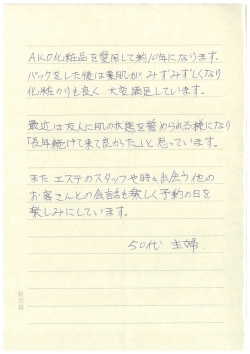 AKO化粧品を愛用して約10年になります。
パックをした後は素肌が、みずみずしくなり
化粧のりも良く、大変満足しています。
最近は友人に肌の状態を誉められる様になり
「長年続けて来て良かった」と思っています。
また エステのスタッフや時々出会う他の
お客さんとの会話も楽しく予約の日を
楽しみにしています。
50代 主婦